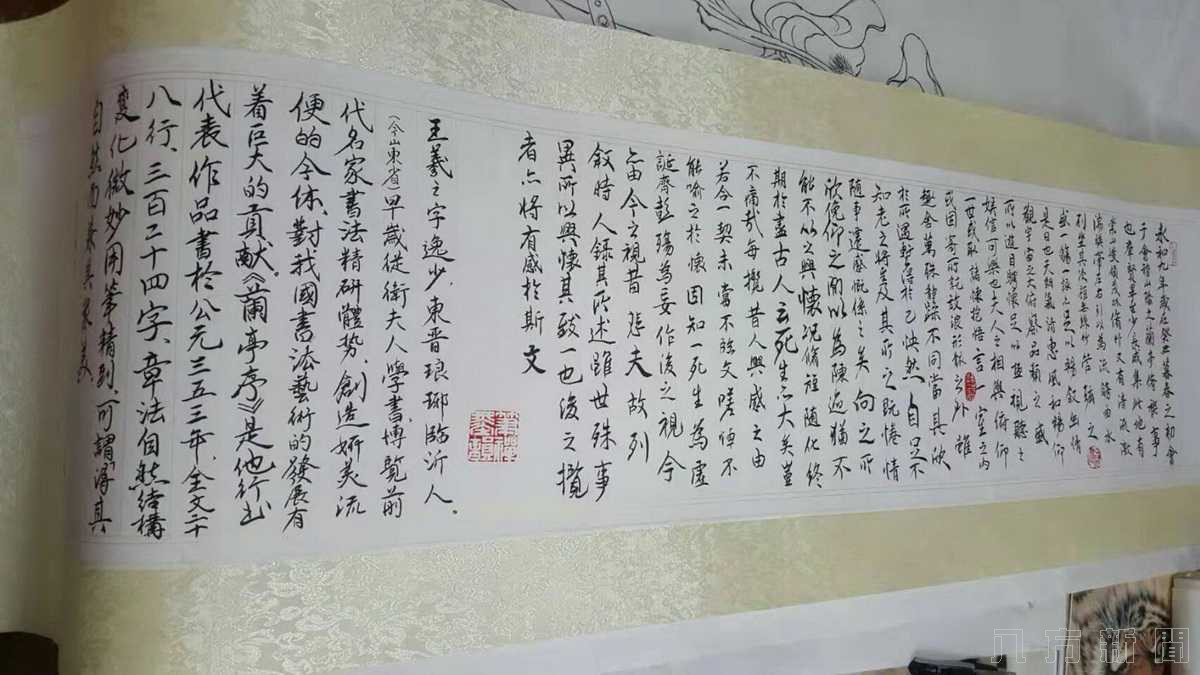 永和九年歲在癸丑暮春之初會
于會稽山陰之蘭亭脩禊事
也羣賢畢至少長咸集此地有
崇山峻領茂林脩竹又有清流激
湍映帶左右引以為流觴曲水
列坐其次雖無絲竹管絃之
盛一觴一詠亦足以暢敘幽情
是日也天朗氣清惠風和暢仰
觀宇宙之大俯察品類之盛
所以遊目騁懷足以極視聽之
娛信可樂也夫人之相與俯仰
一世或取諸懷抱悟言一室之內
或因寄所託放浪形骸之外雖
趣舍萬殊靜躁不同當其欣
於所遇暫得於己怏然自足不
知老之將至及其所之既惓情
隨事遷感慨係之矣向之所
欣俛仰之間以為陳迹猶不
能不以之興懷況脩短隨化終
期於盡古人云死生亦大矣豈
不痛哉每攬昔人興感之由
若合一契未嘗不臨文嗟悼不
能喻之於懷固知一死生為虛
誕齊彭殤為妄作後之視今
亦由今之視昔悲夫故列
敘時人錄其所述雖世殊事
異所以興懷其致一也後之攬
者亦將有感於斯文
王羲之字逸少,東晉琅琊臨沂人。
(今山東省)早歲從衛夫人學書,博覽前
代名家書法精研體勢,創造妍美流
便的今体,對我國書法藝術的發展有
着巨大的貢献。《蘭亭序》是他行书
代表作品書於公元三五三年,全文二十
八行、三百二十四字、章法自然结構
變化微妙用筆精到,可謂得其
自然而兼具眾美
八方新聞